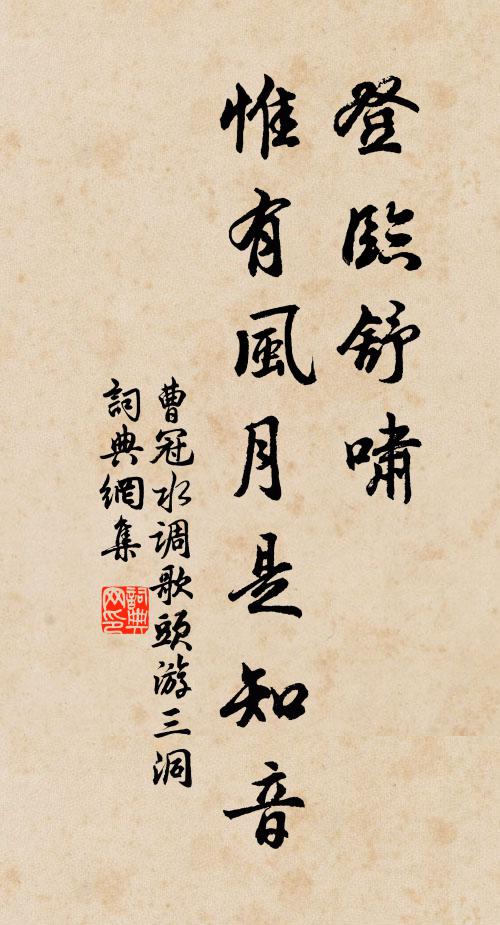 登臨舒嘯
惟有風月是知音
曹冠水调歌頭游三洞
詞典網集
詞典
网印